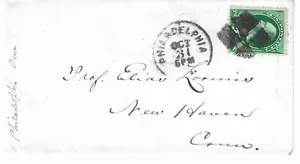 PHILADELPHIA
OCT
31
6 PM
Prof. Elias Loomis
New Haven
Conn.
Philadelphia